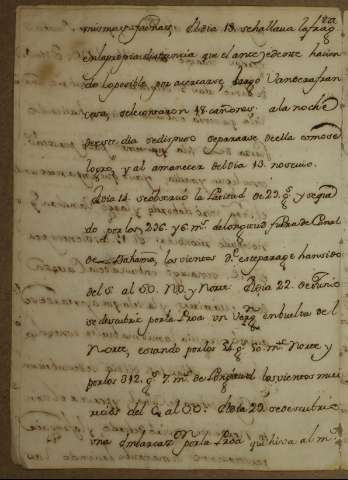 mismas faenas. El dia 18 se hallava la frag.ta
en la propia distancia que el antezedente havien
do lo posible por acercarse largò Vandera fran
cesa, se le contaron 18 cañones: a la noche
de este dia se dispuso separarse de ella como se
logró, y al amanecer del dia 13 no se vio.
El dia 14 se observó la Latitud de 29. g.s y seguia
do por los 296. y 6 m.s de longitud fuera de Canal
de Bahama, los vientos d.l este parage han sido
del S. al SO. NO. y Norte. El dia 22 de Junio
se descubrio por la Proa un Verg.n en buelta de l
Norte, estando por los 34. g.s 50 m.s Norte y
por los 312. g.s 7. m.s de Longitud los vientos mui
recios del al SO: El dia 29 se descubrio
una Embarcaz.on por la Proa que hiva al m.o